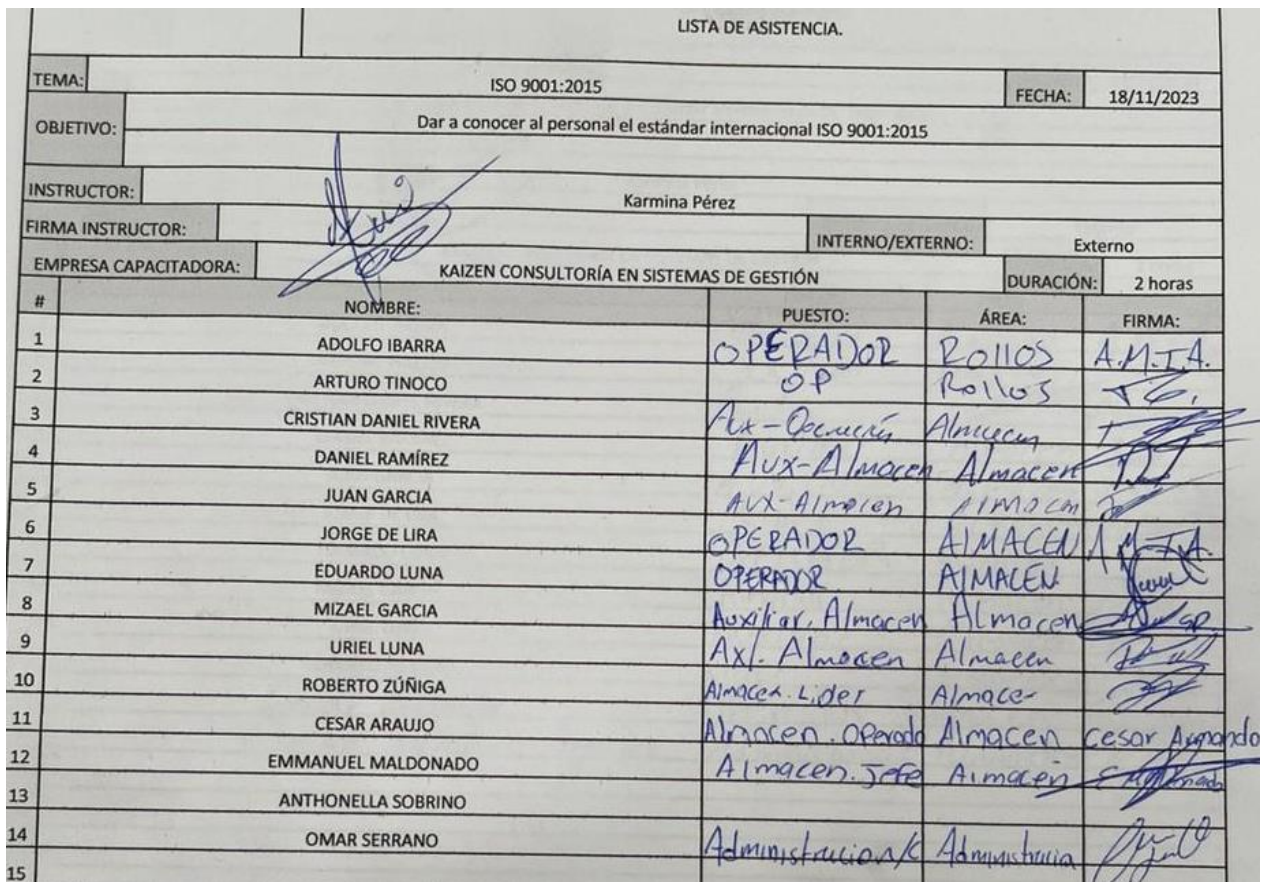 LISTA DE ASISTENCIA.
TEMA: ISO 9001:2015 FECHA: 18/11/2023
OBJETIVO: Dar a conocer al personal el estándar internacional ISO 9001:2015
INSTRUCTOR: Karmina Pérez
FIRMA INSTRUCTOR: INTERNO/EXTERNO: Externo
EMPRESA CAPACITADORA: KAIZEN CONSULTORÍA EN SISTEMAS DE GESTIÓN DURACIÓN: 2 horas
# NOMBRE: PUESTO: ÁREA: FIRMA:
1 ADOLFO IBARRA OPERADOR Rollos A.M.I.A.
2 ARTURO TINOCO OP Rollos
3 CRISTIAN DANIEL RIVERA Aux- Almacen
4 DANIEL RAMÍREZ Aux-Almacen Almacen
5 JUAN GARCIA AUX-Almacen Almacen
6 JORGE DE LIRA OPERADOR AlMACEN
7 EDUARDO LUNA OPERADOR AlMACEN
8 MIZAEL GARCIA Auxiliar. Almacen Almacen
9 URIEL LUNA Axl. Almacen Almacen
10 ROBERTO ZÚÑIGA Almacen. Lider Almacen
11 CESAR ARAUJO Almacen. Operado Almacen Cesar Armando
12 EMMANUEL MALDONADO Almacen. Jefe Almacen
13 ANTHONELLA SOBRINO
14 OMAR SERRANO Administracion/C Administracia
15